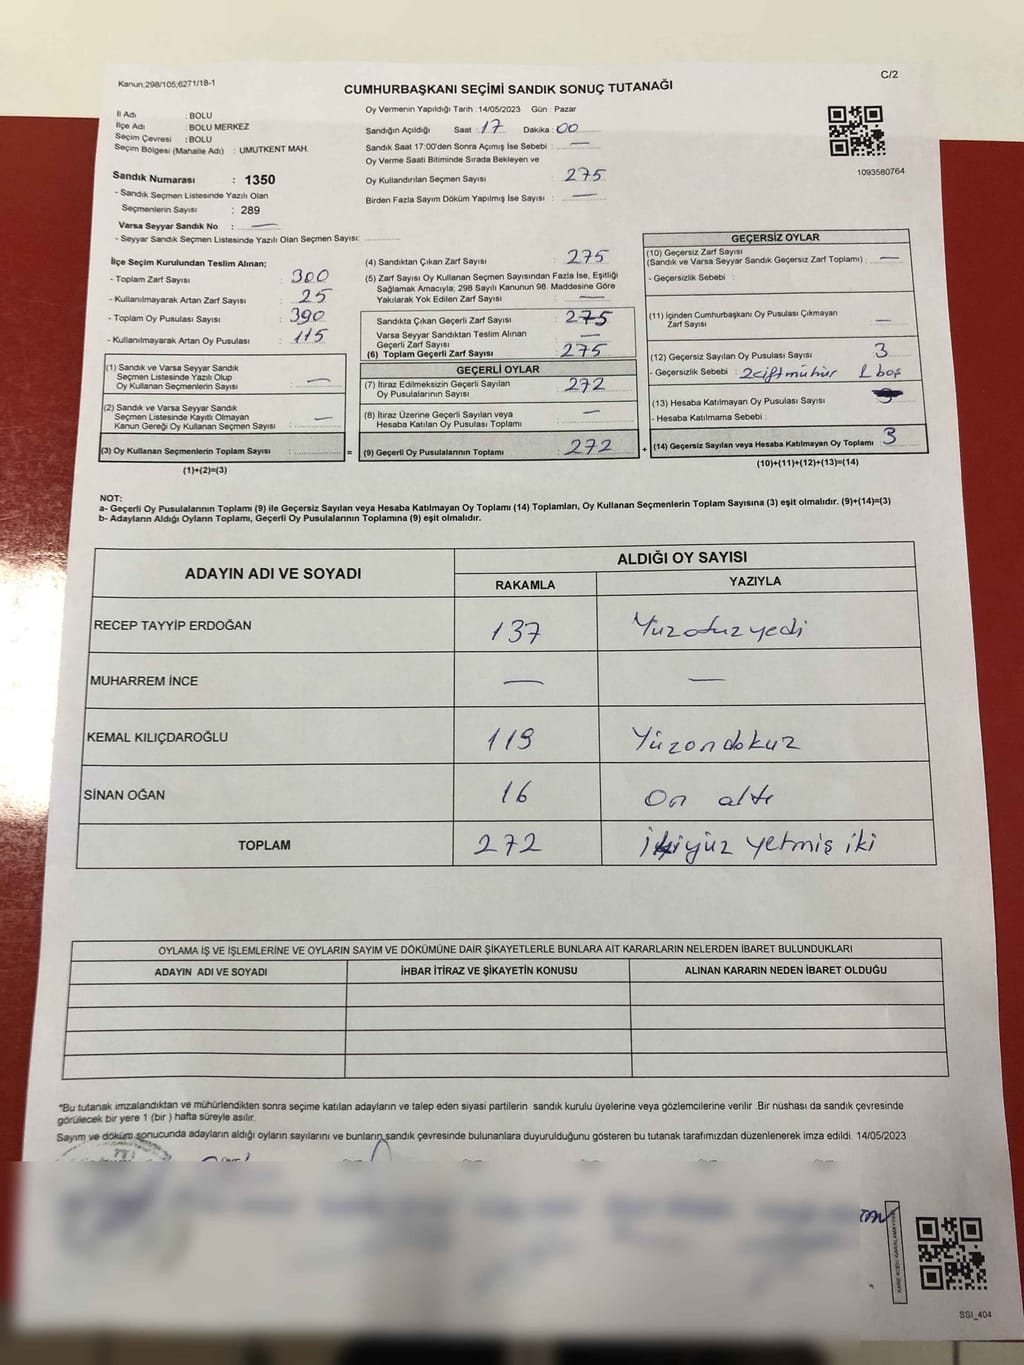 Kanun,298/105;6271/18-1
C/2
CUMHURBAŞKANI SEÇİMİ SANDIK SONUÇ TUTANAĞI
İl Adı : BOLU
İlçe Adı : BOLU MERKEZ
Seçim Çevresi : BOLU
Seçim Bölgesi (Mahalle Adı) : UMUTKENT MAH.
Sandık Numarası : 1350
- Sandık Seçmen Listesinde Yazılı Olan
Seçmenlerin Sayısı : 289
Varsa Seyyar Sandık No : —
- Seyyar Sandık Seçmen Listesinde Yazılı Olan Seçmen Sayısı:
Oy Vermenin Yapıldığı Tarih : 14/05/2023 Gün : Pazar
Sandığın Açıldığı Saat : 17 Dakika : 00
Sandık Saat 17:00'den Sonra Açımış İse Sebebi : —
Oy Verme Saati Bitiminde Sırada Bekleyen ve
Oy Kullandırılan Seçmen Sayısı : 275
Birden Fazla Sayım Döküm Yapılmış İse Sayısı : —
1093580764
İlçe Seçim Kurulundan Teslim Alınan;
- Toplam Zarf Sayısı : 300
- Kullanılmayarak Artan Zarf Sayısı : 25
- Toplam Oy Pusulası Sayısı : 390
- Kullanılmayarak Artan Oy Pusulası : 115
(1) Sandık ve Varsa Seyyar Sandık
Seçmen Listesinde Yazılı Olup
Oy Kullanan Seçmenlerin Sayısı : —
(2) Sandık ve Varsa Seyyar Sandık
Seçmen Listesinde Kayıtlı Olmayan
Kanun Gereği Oy Kullanan Seçmen Sayısı : —
(3) Oy Kullanan Seçmenlerin Toplam Sayısı :
=
(1)+(2)=(3)
(4) Sandıktan Çıkan Zarf Sayısı : 275
(5) Zarf Sayısı Oy Kullanan Seçmen Sayısından Fazla İse, Eşitliği
Sağlamak Amacıyla; 298 Sayılı Kanunun 98. Maddesine Göre
Yakılarak Yok Edilen Zarf Sayısı : —
Sandıkta Çıkan Geçerli Zarf Sayısı : 275
Varsa Seyyar Sandıktan Teslim Alınan
Geçerli Zarf Sayısı : —
(6) Toplam Geçerli Zarf Sayısı : 275
GEÇERLİ OYLAR
(7) İtiraz Edilmeksizin Geçerli Sayılan
Oy Pusulalarının Sayısı : 272
(8) İtiraz Üzerine Geçerli Sayılan veya
Hesaba Katılan Oy Pusulası Toplamı : —
(9) Geçerli Oy Pusulalarının Toplamı : 272
+
GEÇERSİZ OYLAR
(10) Geçersiz Zarf Sayısı
(Sandık ve Varsa Seyyar Sandık Geçersiz Zarf Toplamı) : —
- Geçersizlik Sebebi :
(11) İçinden Cumhurbaşkanı Oy Pusulası Çıkmayan
Zarf Sayısı : —
(12) Geçersiz Sayılan Oy Pusulası Sayısı : 3
- Geçersizlik Sebebi : 2 çift mühür 1 boş
(13) Hesaba Katılmayan Oy Pusulası Sayısı :
- Hesaba Katılmama Sebebi :
(14) Geçersiz Sayılan veya Hesaba Katılmayan Oy Toplamı : 3
(10)+(11)+(12)+(13)=(14)
NOT:
a- Geçerli Oy Pusulalarının Toplamı (9) ile Geçersiz Sayılan veya Hesaba Katılmayan Oy Toplamı (14) Toplamları, Oy Kullanan Seçmenlerin Toplam Sayısına (3) eşit olmalıdır. (9)+(14)=(3)
b- Adayların Aldığı Oyların Toplamı, Geçerli Oy Pusulalarının Toplamına (9) eşit olmalıdır.
ADAYIN ADI VE SOYADI ALDIĞI OY SAYISI
RAKAMLA YAZIYLA
RECEP TAYYİP ERDOĞAN 137 Yüzotuzyedi
MUHARREM İNCE — —
KEMAL KILIÇDAROĞLU 119 Yüzondokuz
SİNAN OĞAN 16 On altı
TOPLAM 272 İkiyüz yetmiş iki
OYLAMA İŞ VE İŞLEMLERİNE VE OYLARIN SAYIM VE DÖKÜMÜNE DAİR ŞİKAYETLERLE BUNLARA AİT KARARLARIN NELERDEN İBARET BULUNDUKLARI
ADAYIN ADI VE SOYADI İHBAR İTİRAZ VE ŞİKAYETİN KONUSU ALINAN KARARIN NEDEN İBARET OLDUĞU
*Bu tutanak imzalandıktan ve mühürlendikten sonra seçime katılan adayların ve talep eden siyasi partilerin sandık kurulu üyelerine veya gözlemcilerine verilir .Bir nüshası da sandık çevresinde
görülecek bir yere 1 (bir ) hafta süreyle asılır.
Sayım ve döküm sonucunda adayların aldığı oyların sayılarını ve bunların sandık çevresinde bulunanlara duyurulduğunu gösteren bu tutanak tarafımızdan düzenlenerek imza edildi. 14/05/2023
SSI_404